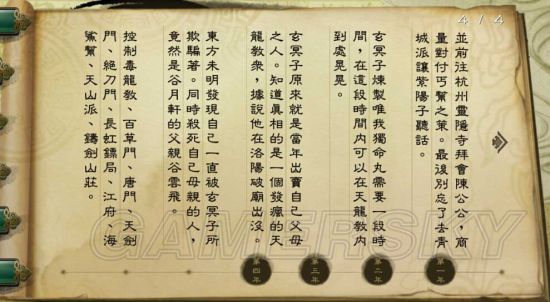 4 / 4
並前往杭州靈隱寺拜會陳公公，商
量對付丐幫之策。最後別忘了去青
城派讓紫陽子聽話。
玄冥子煉製唯我獨命丸需要一段時
間，在這段時間內可以在天龍教內
到處晃晃。
玄冥子原來就是當年出賣自己父母
之人。知道真相的是一個發瘋的天
龍教眾，據說他在洛陽破廟出沒。
東方未明發現自己一直被玄冥子所
欺騙著。同時殺死自己母親的人，
竟然是谷月軒的父親谷雲飛。
控制毒龍教、百草門、唐門、天劍
門、絕刀門、長虹鏢局、江府、海
鯊幫、天山派、鑄劍山莊。
第一年
第二年
第三年
第四年
GAMERSKY